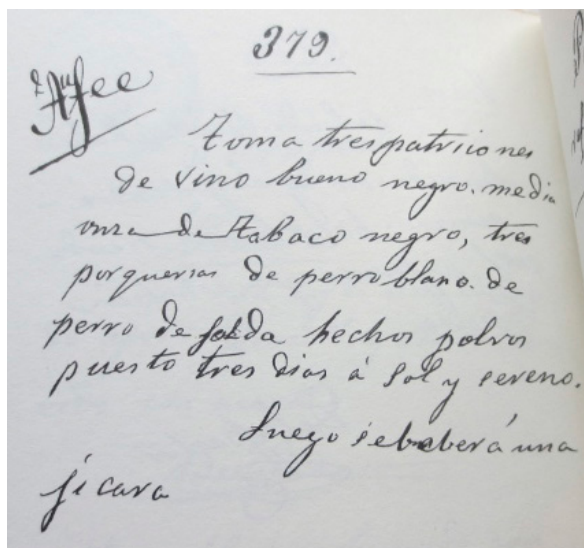 379.
Toma tres patriciones
de vino bueno negro. media
onza de tabaco negro, tres
porquerias de perro blano. de
perro de falda hechos polvos
puesto tres dias á sol y sereno.
Luego se beberá una
jicara